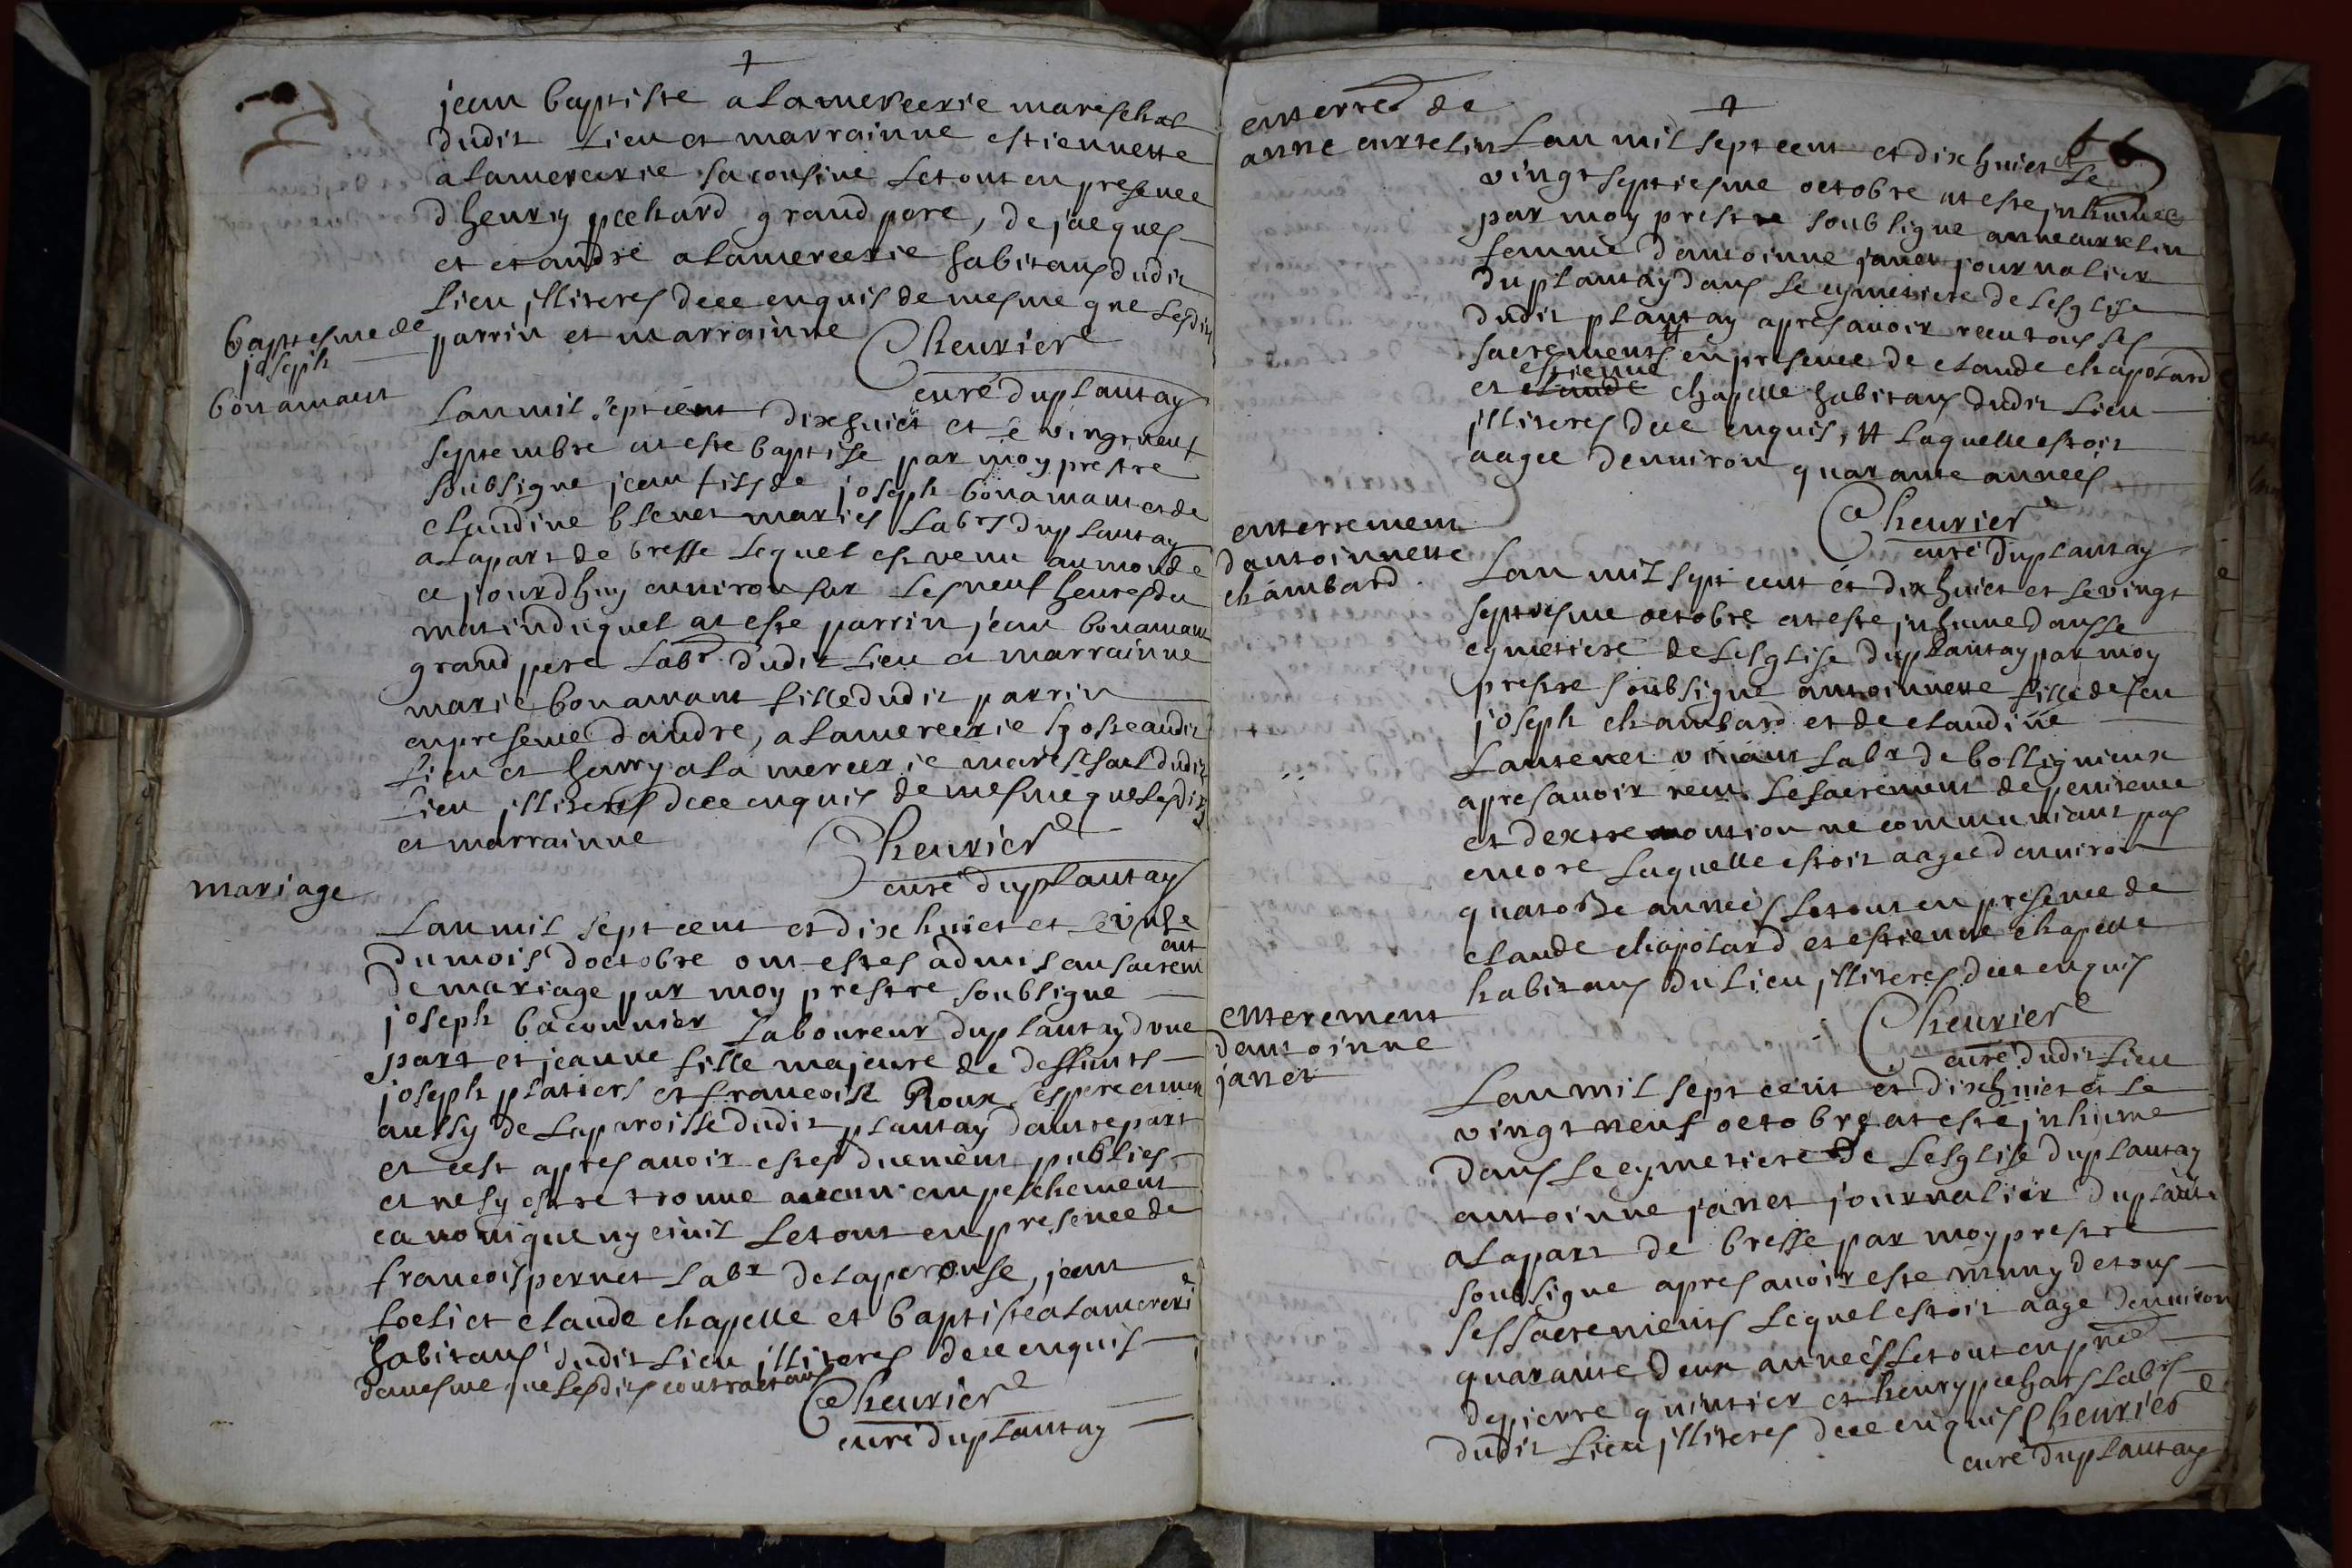 jean baptiste alamercerie mareschal
dudit lieu et marrainne estiennette
alamercerie sa cousine le tout en presence
dhenry pechard grand pere, de jacques
et et andre alamercerie habitans dudit
lieu illiteres de ce enquis de mesme que lesdits
parrin et marrainne
Cheurier
curé du plantay
baptesme de
joseph
bonamant
Lan mil sept cent dix huict et le vingt neuf
septembre at este baptise par moy prestre
soubsigne jean fils de joseph bonamant et de
claudine blenet maries labrs du plantay
a la part de bresse lequel est venu au monde
ce jourdhuy environ sur les neuf heures du
matin duquel at este parrin jean bonamant
grand pere labr dudit lieu et marrainne
marie bonamant fille dudit parrin
en presence dandre, alamercerie hoste audit
lieu et henry alamercerie mareschal dudit
lieu illiteres de ce enquis de mesme que lesdits
et marrainne
Cheurier
curé du plantay
mariage
Lan mil sept cent et dix huict et le
du mois doctobre ont estes admis au sacrem
ent
de mariage par moy prestre soubsigne
joseph baconnier laboureur du plantay dune
part et jeanne fille majeure de deffunts
joseph platiers et francoise Roux ses pere et mere
aussy de la paroisse dudit plantay dautre part
et cest apres avoir estes duement publies
et ne sy estre trouue aucun empeschement
canonique ny ciuil le tout en presence de
francois pernet labr de laperouse, jean
loeli et claude chapelle et baptiste alamercerie
habitans dudit lieu illiteres de ce enquis
de mesme que lesdits contractans
Cheurier
curé du plantay
enterret de
anne curtelin
66
Lan mil sept cent et dix huict et le
vingt septiesme octobre at este inhumée
par moy prestre soubsigne anne curtelin
femme dantoinne janet journalier
du plantay dans le cymetiere de lesglise
dudit plantay apres avoir receu tous ses
sacrements en presence de claude chapolard
estienne
et claude chapelle habitans dudit lieu
illiteres de ce enquis, # laquelle estoit
aagee denuiron quarante annees
Cheurier
curé du plantay
enterrement
dantoinnette
chambard
Lan mil sept cent et dix huict et le vingt
septiesme octobre at este inhume dans le
cymetiere de lesglise du plantay par moy
prestre soubsigne antoinnette fille de feu
joseph chambard et de claudine
Lantenet viuant labr de bollignieux
apres avoir receu le sacrement de penitence
et dextremontion ne communiant pas
encore laquelle estoit aagee denuiron
quatorze annees le tout en presence de
claude chapolard et estienne chapelle
habitans du lieu illiteres de ce enquis
Cheurier
curé dudit lieu
enterement
dantoinne
janet
Lan mil sept cent et dix huict et le
vingt neuf octobre at este inhume
dans le cymetiere de lesglise du plantay
antoinne janet journalier du plantay
a la part de bresse par moy prestre
soubsigne apres avoir este muny de tous
ses sacrements lequel estoit aage denuiron
quarante deux annees le tout en pnce
de pierre quintier et henry pechars labrs
dudit lieu illiteres de ce enquis Cheurier
curé du plantay